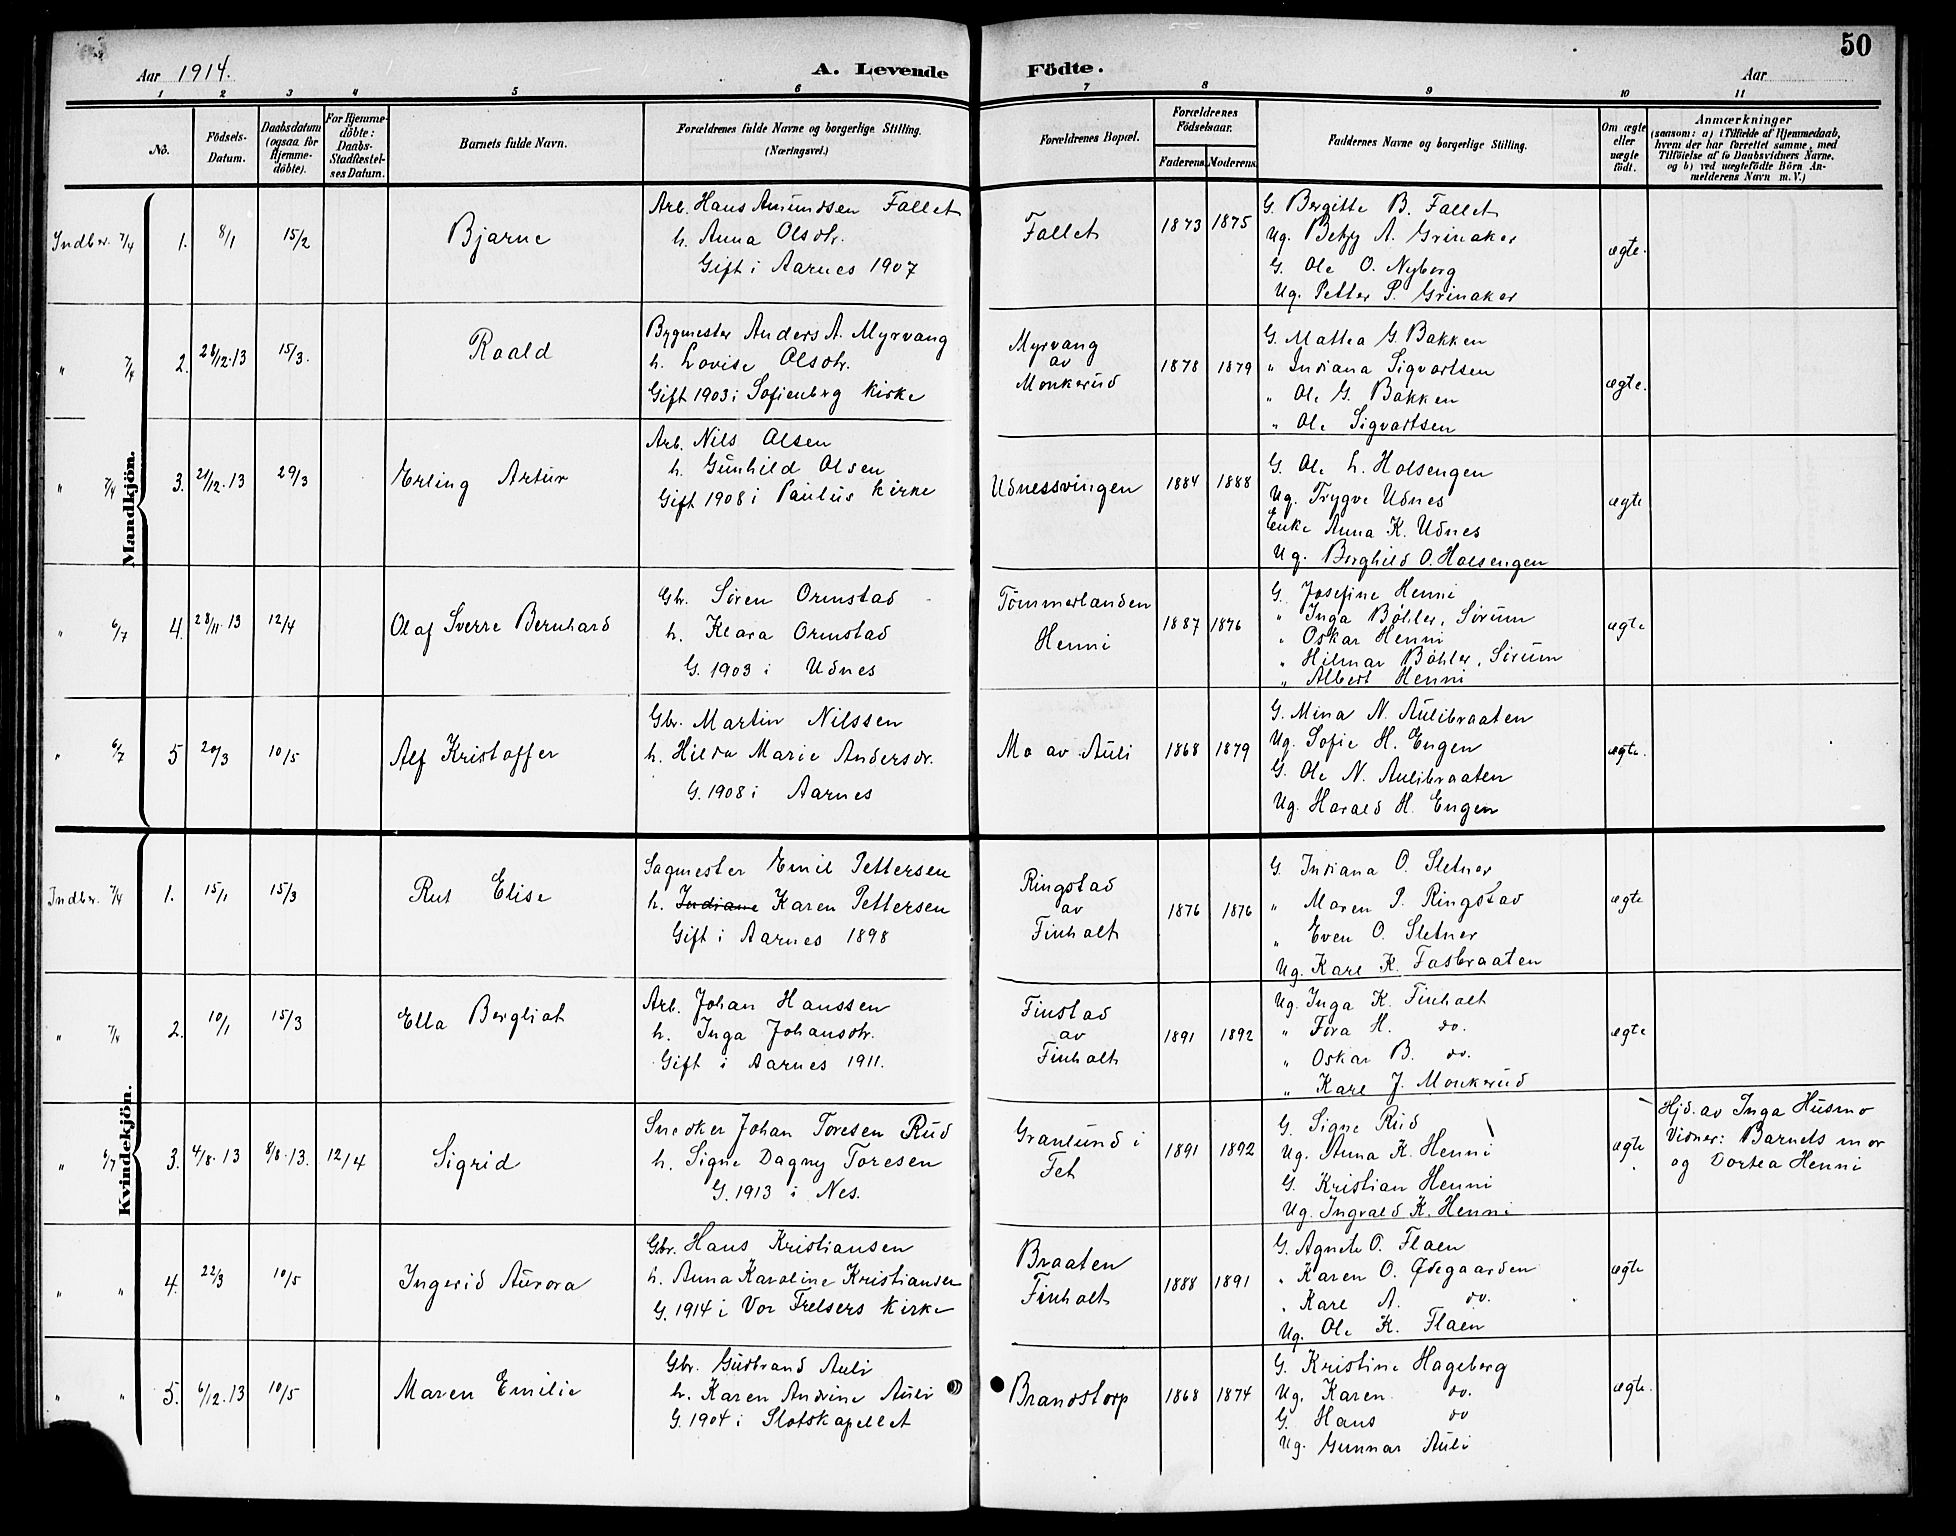 Aar 1914. A. Levende Födte. Aar 50
1 2 3 4 5 6 7 8 9 10 11
No.
Födsels-Datum.
Daabsdatum (ogsaa for Hjemme-döbte).
For Hjemme-döbte: Daabs-Stadfæstel-ses Datum.
Barnets fulde Navn.
Forældrenes fulde Navne og borgerlige Stilling. (Næringsvei.)
Forældrenes Bopæl.
Forældrenes Födselsaar.
Faderens. Moderens.
Faddernes Navne og borgerlige Stilling.
Om ægte eller uægte födt.
Anmærkninger
(saasom: a) i Tilfælde af Hjemmedaab,
hvem der har forrettet samme, med
Tilföielse af to Daabsvidners Navne.
og b) ved uægtefödte Börn An-
melderens Navn m. V.)
Mandkjön.
Indbr. 7/4 1. 8/1 15/2 Bjarne
Arb. Hans Amundsen Fallet
h. Anna Olsdtr.
Gift i Aarnes 1907
Fallet 1873 1875
G. Bergitte B. Fallet
Ug. Betzy A. Grinaker
G. Ole O. Nyborg
Ug. Petter P. Grinaker
ægte.
" 7/4 2. 28/12.13 15/3. Roald
Bygmester Anders A. Myrvang
h. Lovise Olsdtr.
Gift 1903 i Sofienberg Kirke
Myrvang
av
Monkerud
1878 1879
G. Mattea G. Bakken
" Indiana Sigvartsen
" Ole G. Bakken
" Ole Sigvartsen
ægte.
" 7/4 3. 21/12.13 29/3 Erling Artur
Arb. Nils Olsen
h. Gunhild Olsen
Gift 1908 i Paulus Kirke
Udnessvingen 1884 1888
G. Ole L. Holsengen
Ug. Trygve Udnes
Enke Anna K. Udnes
Ug. Borghild O. Holsengen
ægte
" 6/7 4. 28/11.13 12/4 Olaf Sverre Bernhard
Gbr. Søren Ormstad
h. Klara Ormstad
G. 1903 i Udnes
Tømmerlanden
Henni
1887 1876
G. Josefine Henni
" Inga Bøhler, Sørum
" Oskar Henni
" Hilmar Bøhler, Sørum
" Albert Henni
ægte
" 6/7 5 20/3 10/5 Alf Kristoffer
Gbr. Martin Nilssen
h. Hilda Marie Andersdr.
G. 1908 i Aarnes
Mo av Auli 1868 1879
G. Mina N. Aulibraaten
Ug. Sofie H. Engen
G. Ole N. Aulibraaten
Ug. Harald H. Engen
ægte.
Kvindekjön.
Indbr. 7/4 1. 15/1 15/3 Rut Elise
Sagmester Emil Pettersen
h. Indiane Karen Pettersen
Gift i Aarnes 1898
Ringstad
av
Finholt
1876 1876
G. Indiana O. Sletner
" Maren P. Ringstad
" Even O. Sletner
Ug. Karl K. Fasbraaten
ægte
" 7/4 2. 10/1 15/3 Ella Bergliot
Arb. Johan Hanssen
h. Inga Johansdtr.
Gift i Aarnes 1911.
Finstad
av
Finholt
1891 1892
Ug. Inga K. Finholt
" Fora H. do.
" Oskar B. do.
" Karl J. Monkerud
ægte
" 6/7 3. 4/8.13 8/8.13. 12/4 Sigrid
Snedker Johan Toresen Rud
h. Signe Dagny Toresen
G. 1913 i Nes.
Granlund i
Fet
1891 1892
G. Signe Rud
Ug. Anna K. Henni
G. Kristian Henni
Ug. Ingvald K. Henni
ægte
Hjd. av Inga Husmo
Vidner: Barnets mor
og Dortea Henni
" " 4. 22/3 10/5 Ingerid Aurora
Gbr. Hans Kristiansen
h. Anna Karoline Kristiansen
G. 1914 i Vor Frelsers Kirke
Braaten
Finholt
1888 1891
G. Agnete O. Flaen
" Karen O. Ødegaarden
" Karl A. do.
Ug. Ole K. Flaen
ægte
" " 5. 6/12.13 10/5 Maren Emilie
Gbr. Gudbrand Auli
h. Karen Andrine Auli
G. 1904 i Slotskapellet
Brandstorp 1868 1874
G. Kristine Hageberg
Ug. Karen do.
G. Hans do
Ug. Gunnar Auli
ægte.